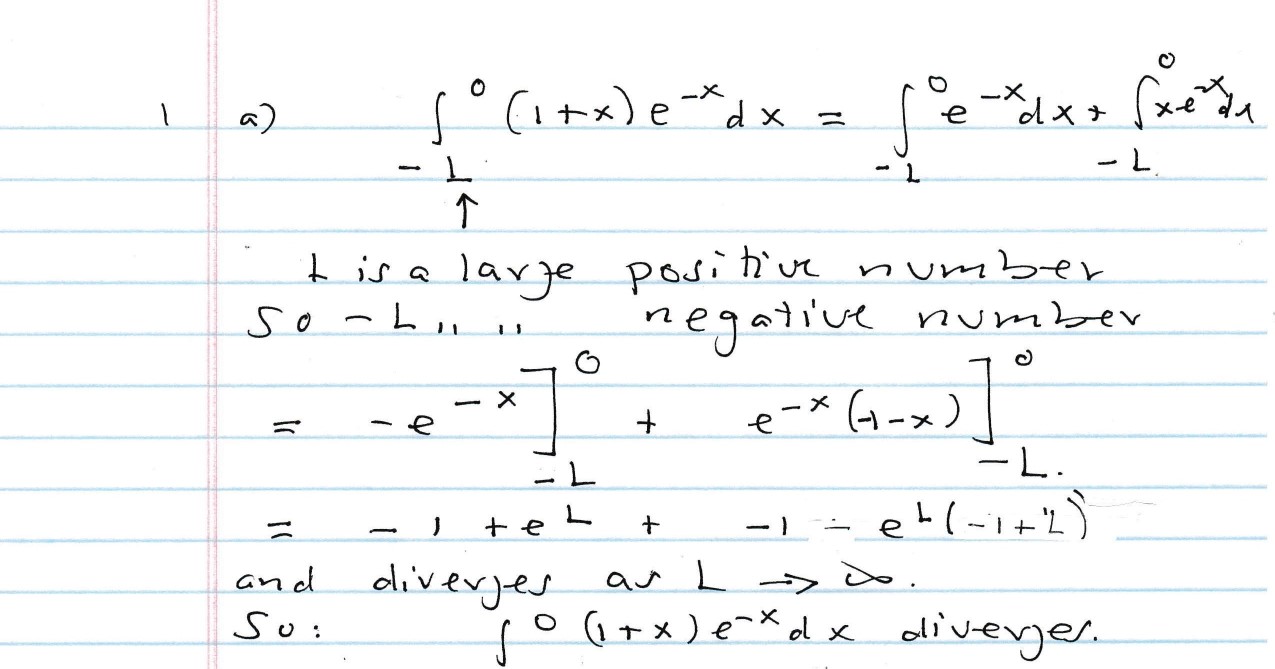 1 a) ∫_{-L}^{0} (1+x) e^{-x} dx = ∫_{-L}^{0} e^{-x} dx + ∫_{-L}^{0} x e^{-x} dx
↑
L is a large positive number
So -L ,, ,, negative number
= -e^{-x} ]_{-L}^{0} + e^{-x} (-1-x) ]_{-L}^{0}.
= -1 + e^{L} + -1 - e^{L} (-1+L)
and diverges as L → ∞.
So: ∫^{0} (1+x) e^{-x} dx diverges.